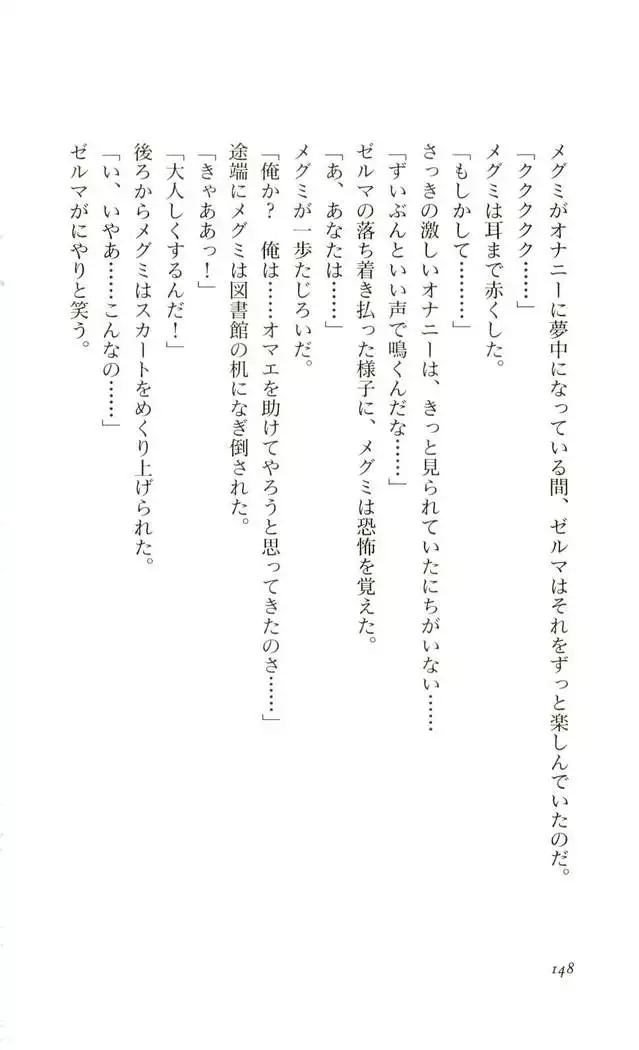 メグミがオナニーに夢中になっている間、ゼルマはそれをずっと楽しんでいたのだ。
「ククククク……」
メグミは耳まで赤くした。
「もしかして………」
さっきの激しいオナニーは、きっと見られていたにちがいない……
「ずいぶんといい声で鳴くんだな……」
ゼルマの落ち着き払った様子に、メグミは恐怖を覚えた。
「あ、あなたは……」
メグミが一歩たじろいだ。
「俺か？　俺は……オマエを助けてやろうと思ってきたのさ……」
途端にメグミは図書館の机になぎ倒された。
「きゃああっ！」
「大人しくするんだ！」
後ろからメグミはスカートをめくり上げられた。
「い、いやあ……こんなの……」
ゼルマがにやりと笑う。
148